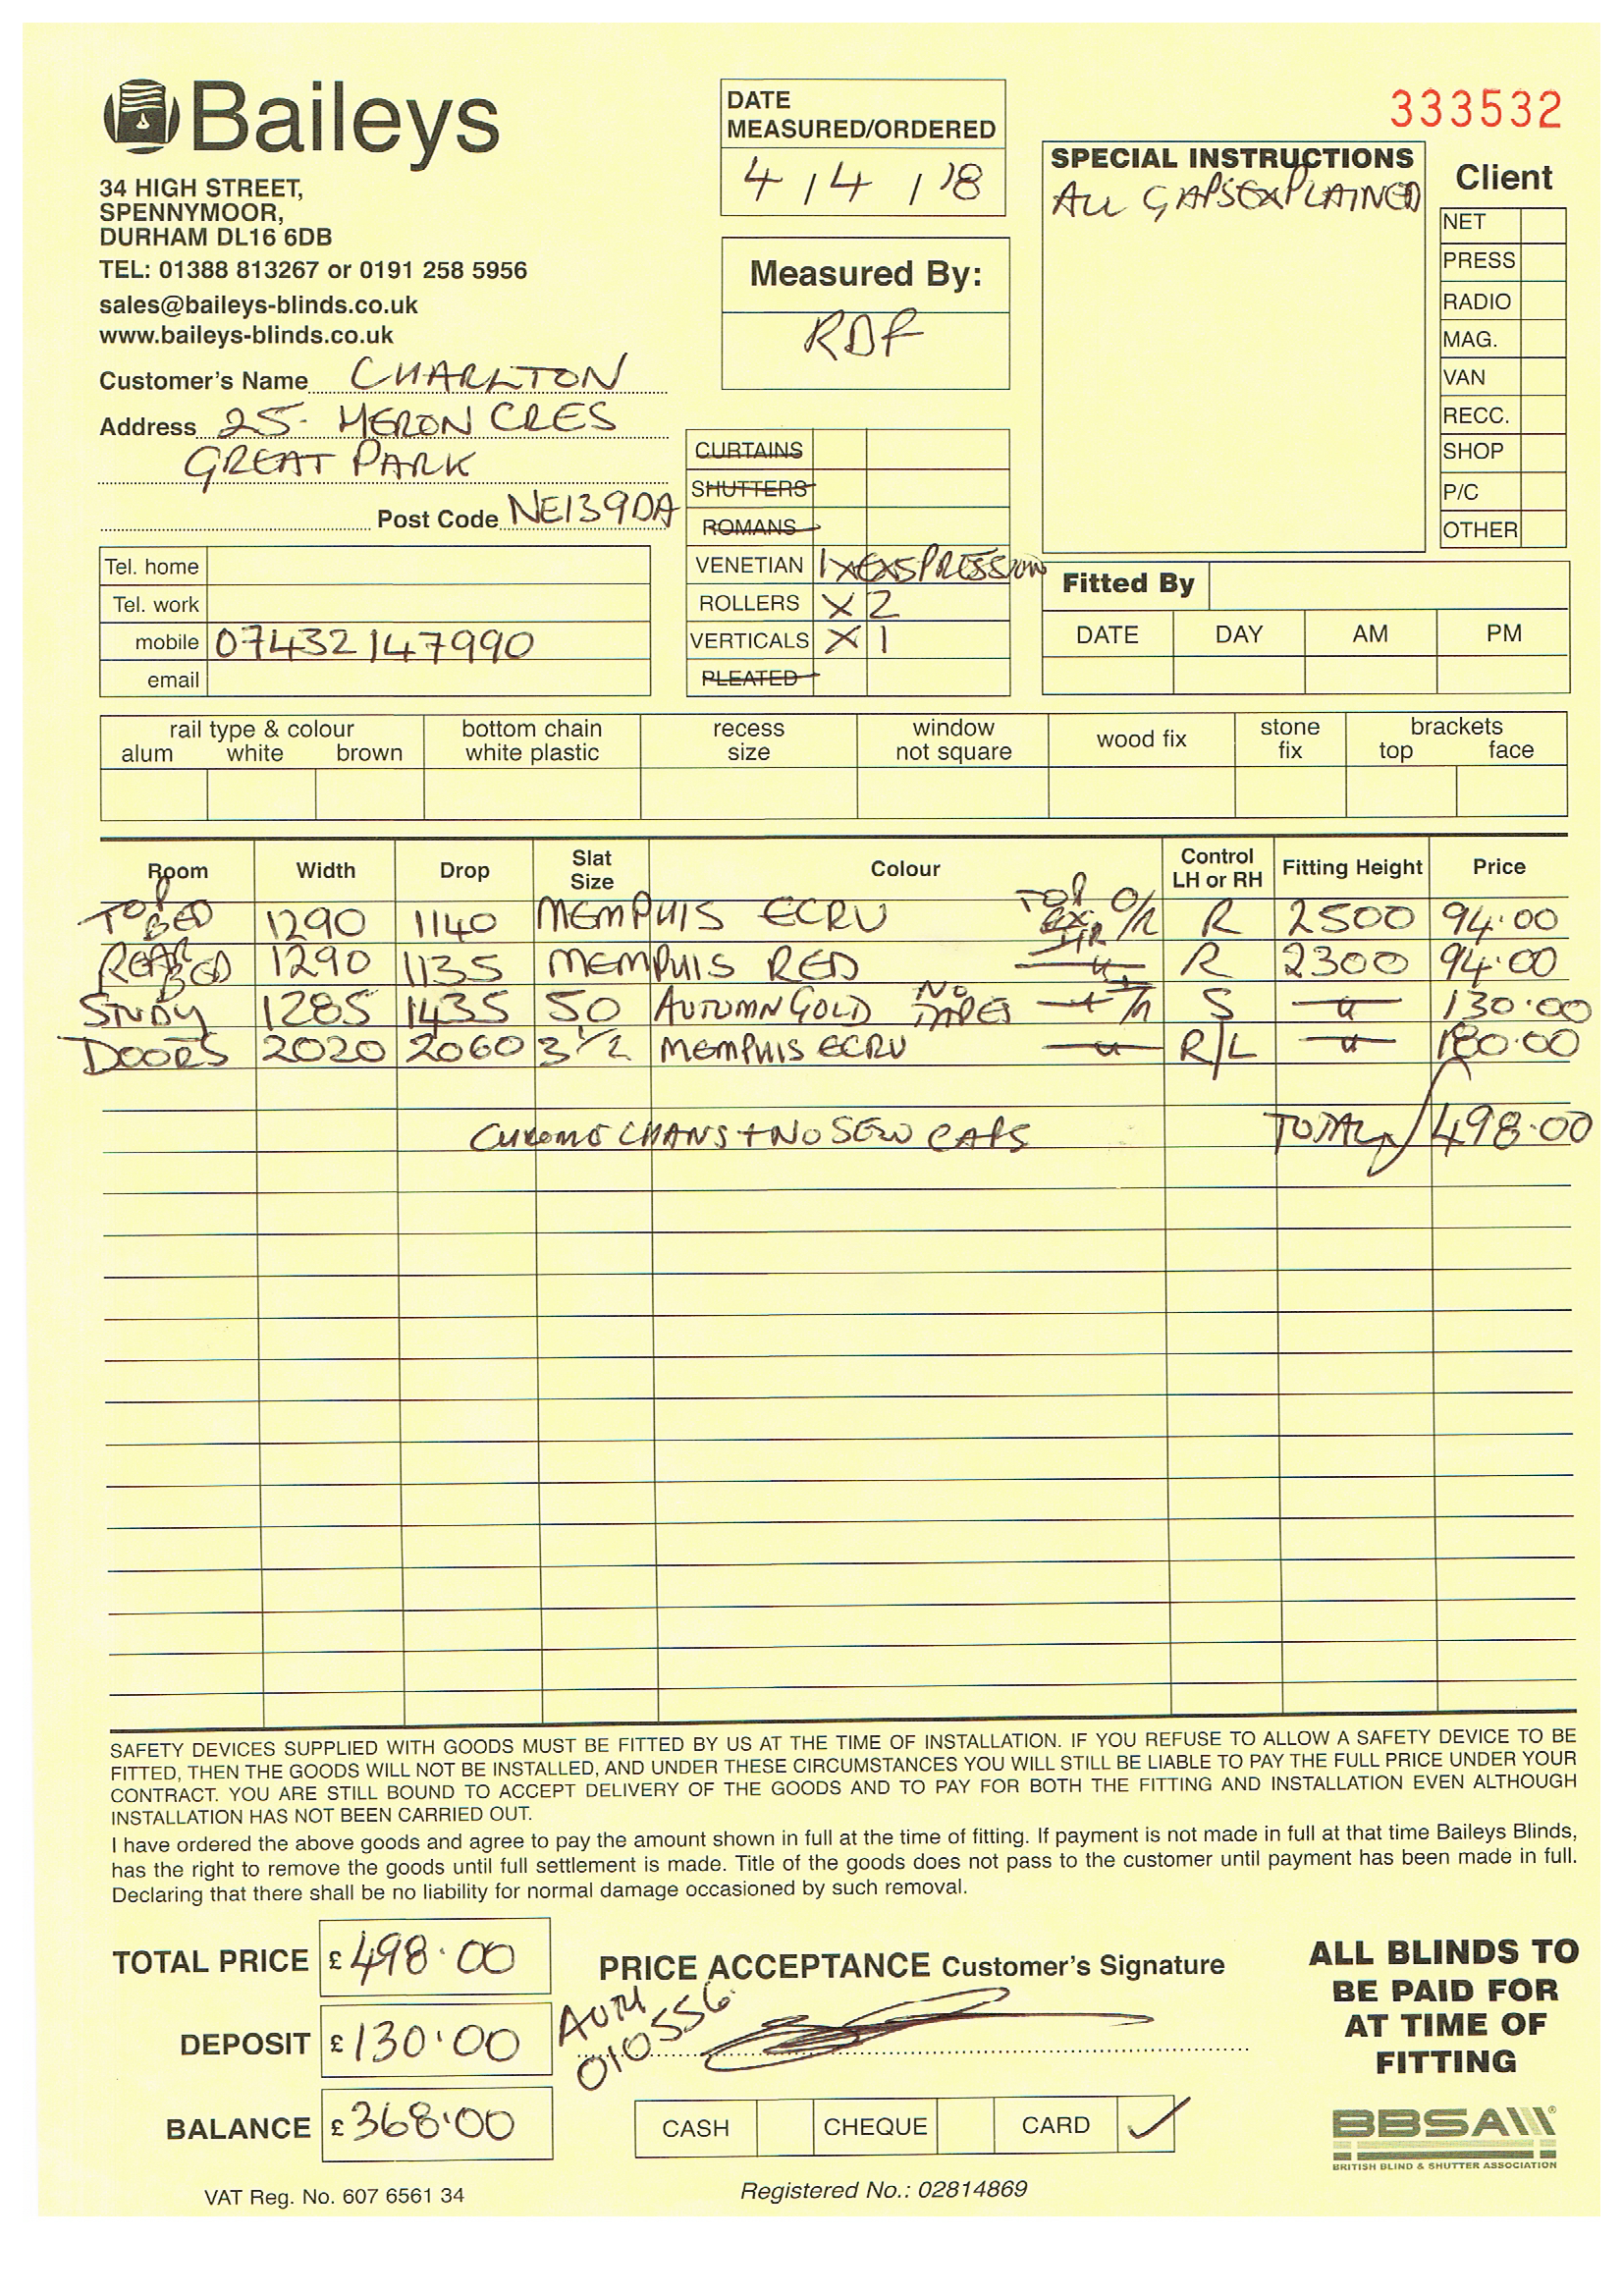 Baileys
34 HIGH STREET,
SPENNYMOOR,
DURHAM DL16 6DB
TEL: 01388 813267 or 0191 258 5956
sales@baileys-blinds.co.uk
www.baileys-blinds.co.uk
Customer's Name CHARLTON
Address 25. HERON CRES
GREAT PARK
Post Code NE139DA
Tel. home
Tel. work
mobile 07432147990
email
DATE
MEASURED/ORDERED
4 / 4 / '8
Measured By:
RDF
CURTAINS
SHUTTERS
ROMANS
VENETIAN 1XEXSPRESSION
ROLLERS X 2
VERTICALS X 1
PLEATED
333532
SPECIAL INSTRUCTIONS
ALL GAPS EXPLAINED
Client
NET
PRESS
RADIO
MAG.
VAN
RECC.
SHOP
P/C
OTHER
Fitted By
DATE DAY AM PM
rail type & colour bottom chain recess window wood fix stone brackets
alum white brown white plastic size not square fix top face
Room Width Drop Slat Size Colour Control LH or RH Fitting Height Price
TOP BED 1290 1140 MEMPHIS ECRU TOP O/R R 2500 94.00
REAR BED 1290 1135 MEMPHIS RED R 2300 94.00
STUDY 1285 1435 50 AUTUMN GOLD NO TAPES S 130.00
DOORS 2020 2060 3 1/2 MEMPHIS ECRU R/L 180.00
CHROME CHANS + NO SEW CAPS TOTAL 498.00
SAFETY DEVICES SUPPLIED WITH GOODS MUST BE FITTED BY US AT THE TIME OF INSTALLATION. IF YOU REFUSE TO ALLOW A SAFETY DEVICE TO BE
FITTED, THEN THE GOODS WILL NOT BE INSTALLED, AND UNDER THESE CIRCUMSTANCES YOU WILL STILL BE LIABLE TO PAY THE FULL PRICE UNDER YOUR
CONTRACT. YOU ARE STILL BOUND TO ACCEPT DELIVERY OF THE GOODS AND TO PAY FOR BOTH THE FITTING AND INSTALLATION EVEN ALTHOUGH
INSTALLATION HAS NOT BEEN CARRIED OUT.
I have ordered the above goods and agree to pay the amount shown in full at the time of fitting. If payment is not made in full at that time Baileys Blinds,
has the right to remove the goods until full settlement is made. Title of the goods does not pass to the customer until payment has been made in full.
Declaring that there shall be no liability for normal damage occasioned by such removal.
TOTAL PRICE £ 498.00
DEPOSIT £ 130.00
BALANCE £ 368.00
PRICE ACCEPTANCE Customer's Signature
AUTH
010556
CASH CHEQUE CARD ✓
ALL BLINDS TO
BE PAID FOR
AT TIME OF
FITTING
BBSA
BRITISH BLIND & SHUTTER ASSOCIATION
VAT Reg. No. 607 6561 34
Registered No.: 02814869